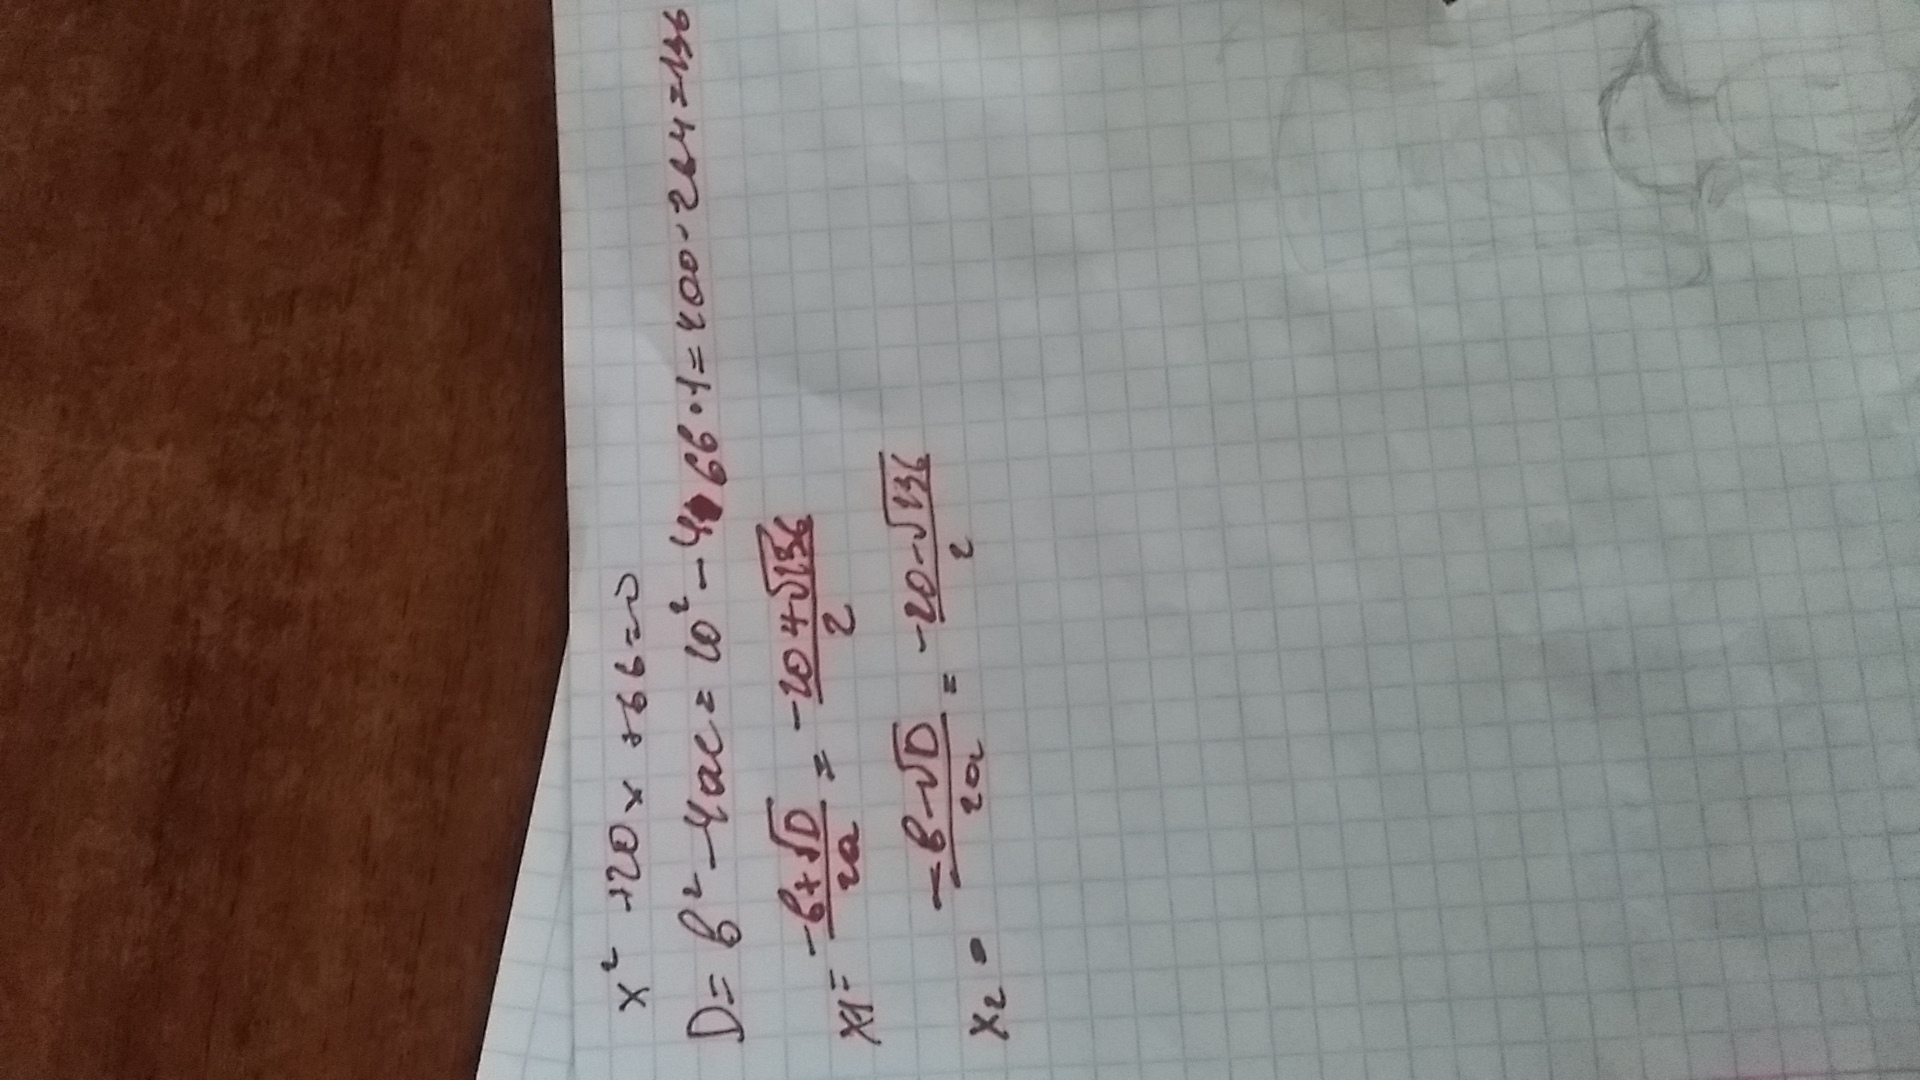 x² +20x +66=0
D= b²-4ac= 20² -4·66·1=400-264=136
x1= -b+√D/2a = -20+√136/2
x2 = -b-√D/2a = -20-√136/2